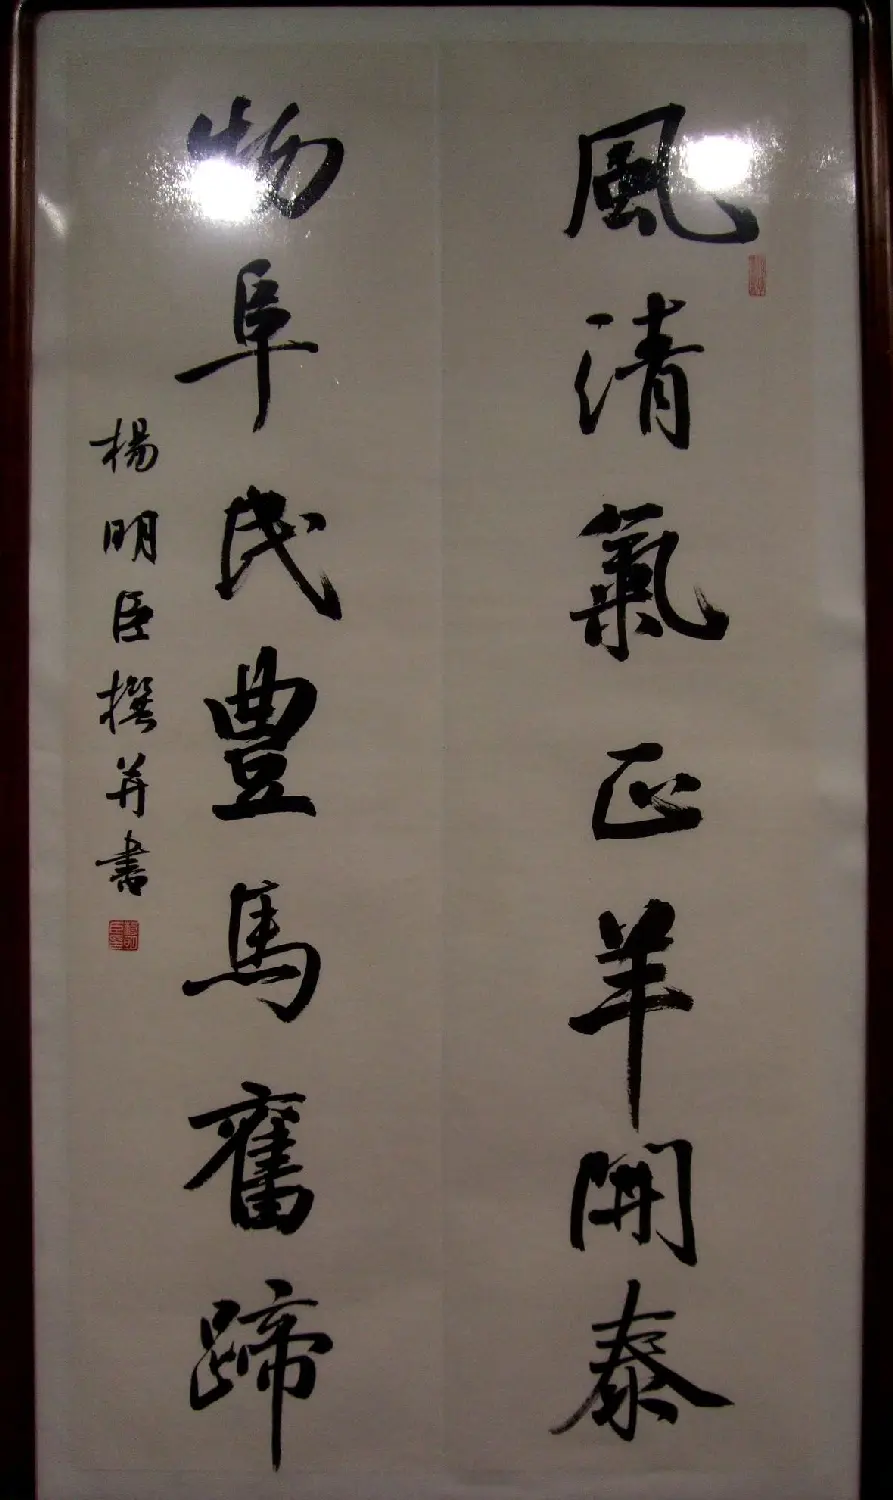 風清氣正羊開泰
物阜民豐馬奮蹄
楊明臣撰并書